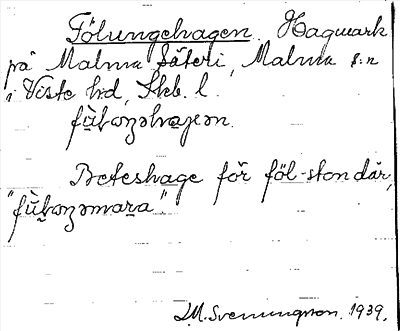 Fölungehagen. Hagmark
på Malma Säteri, Malma s:n
i Viste hrd, Skb. l.
fù̀ɷŋəhaɡən.
Beteshage för föl-ston där,
"fù̀ɷŋəmara".
I.M. Svenungsson. 1939.